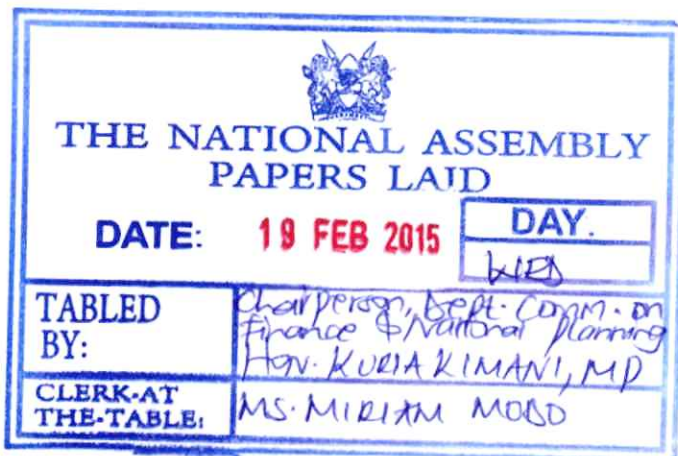 THE NATIONAL ASSEMBLY
PAPERS LAID
DATE: 19 FEB 2015
DAY.
WED
TABLED BY:
Chairperson, Dept. Comm. on
Finance & National Planning
HON. KURIA KIMANI, MP
CLERK-AT THE-TABLE:
MS. MIRIAM MODO